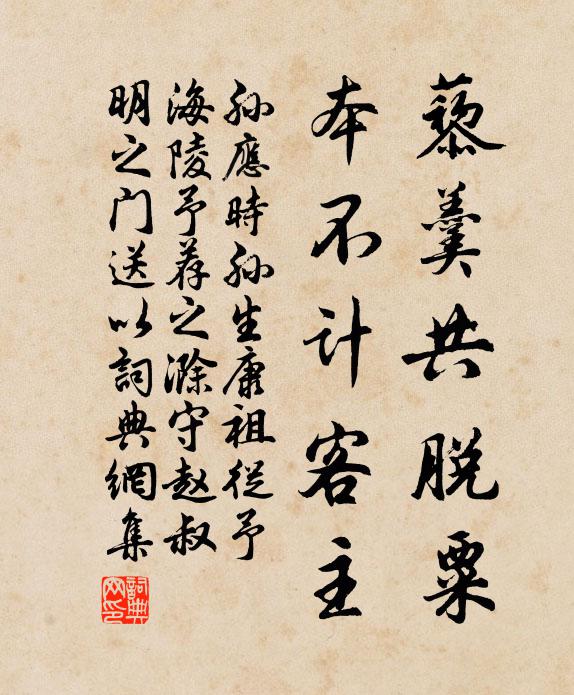 藜羹共脱粟
本不计客主
孙應時孙生康祖從予
海陵予荐之滁守赵叔
明之门送以詞典網集
詞典网印